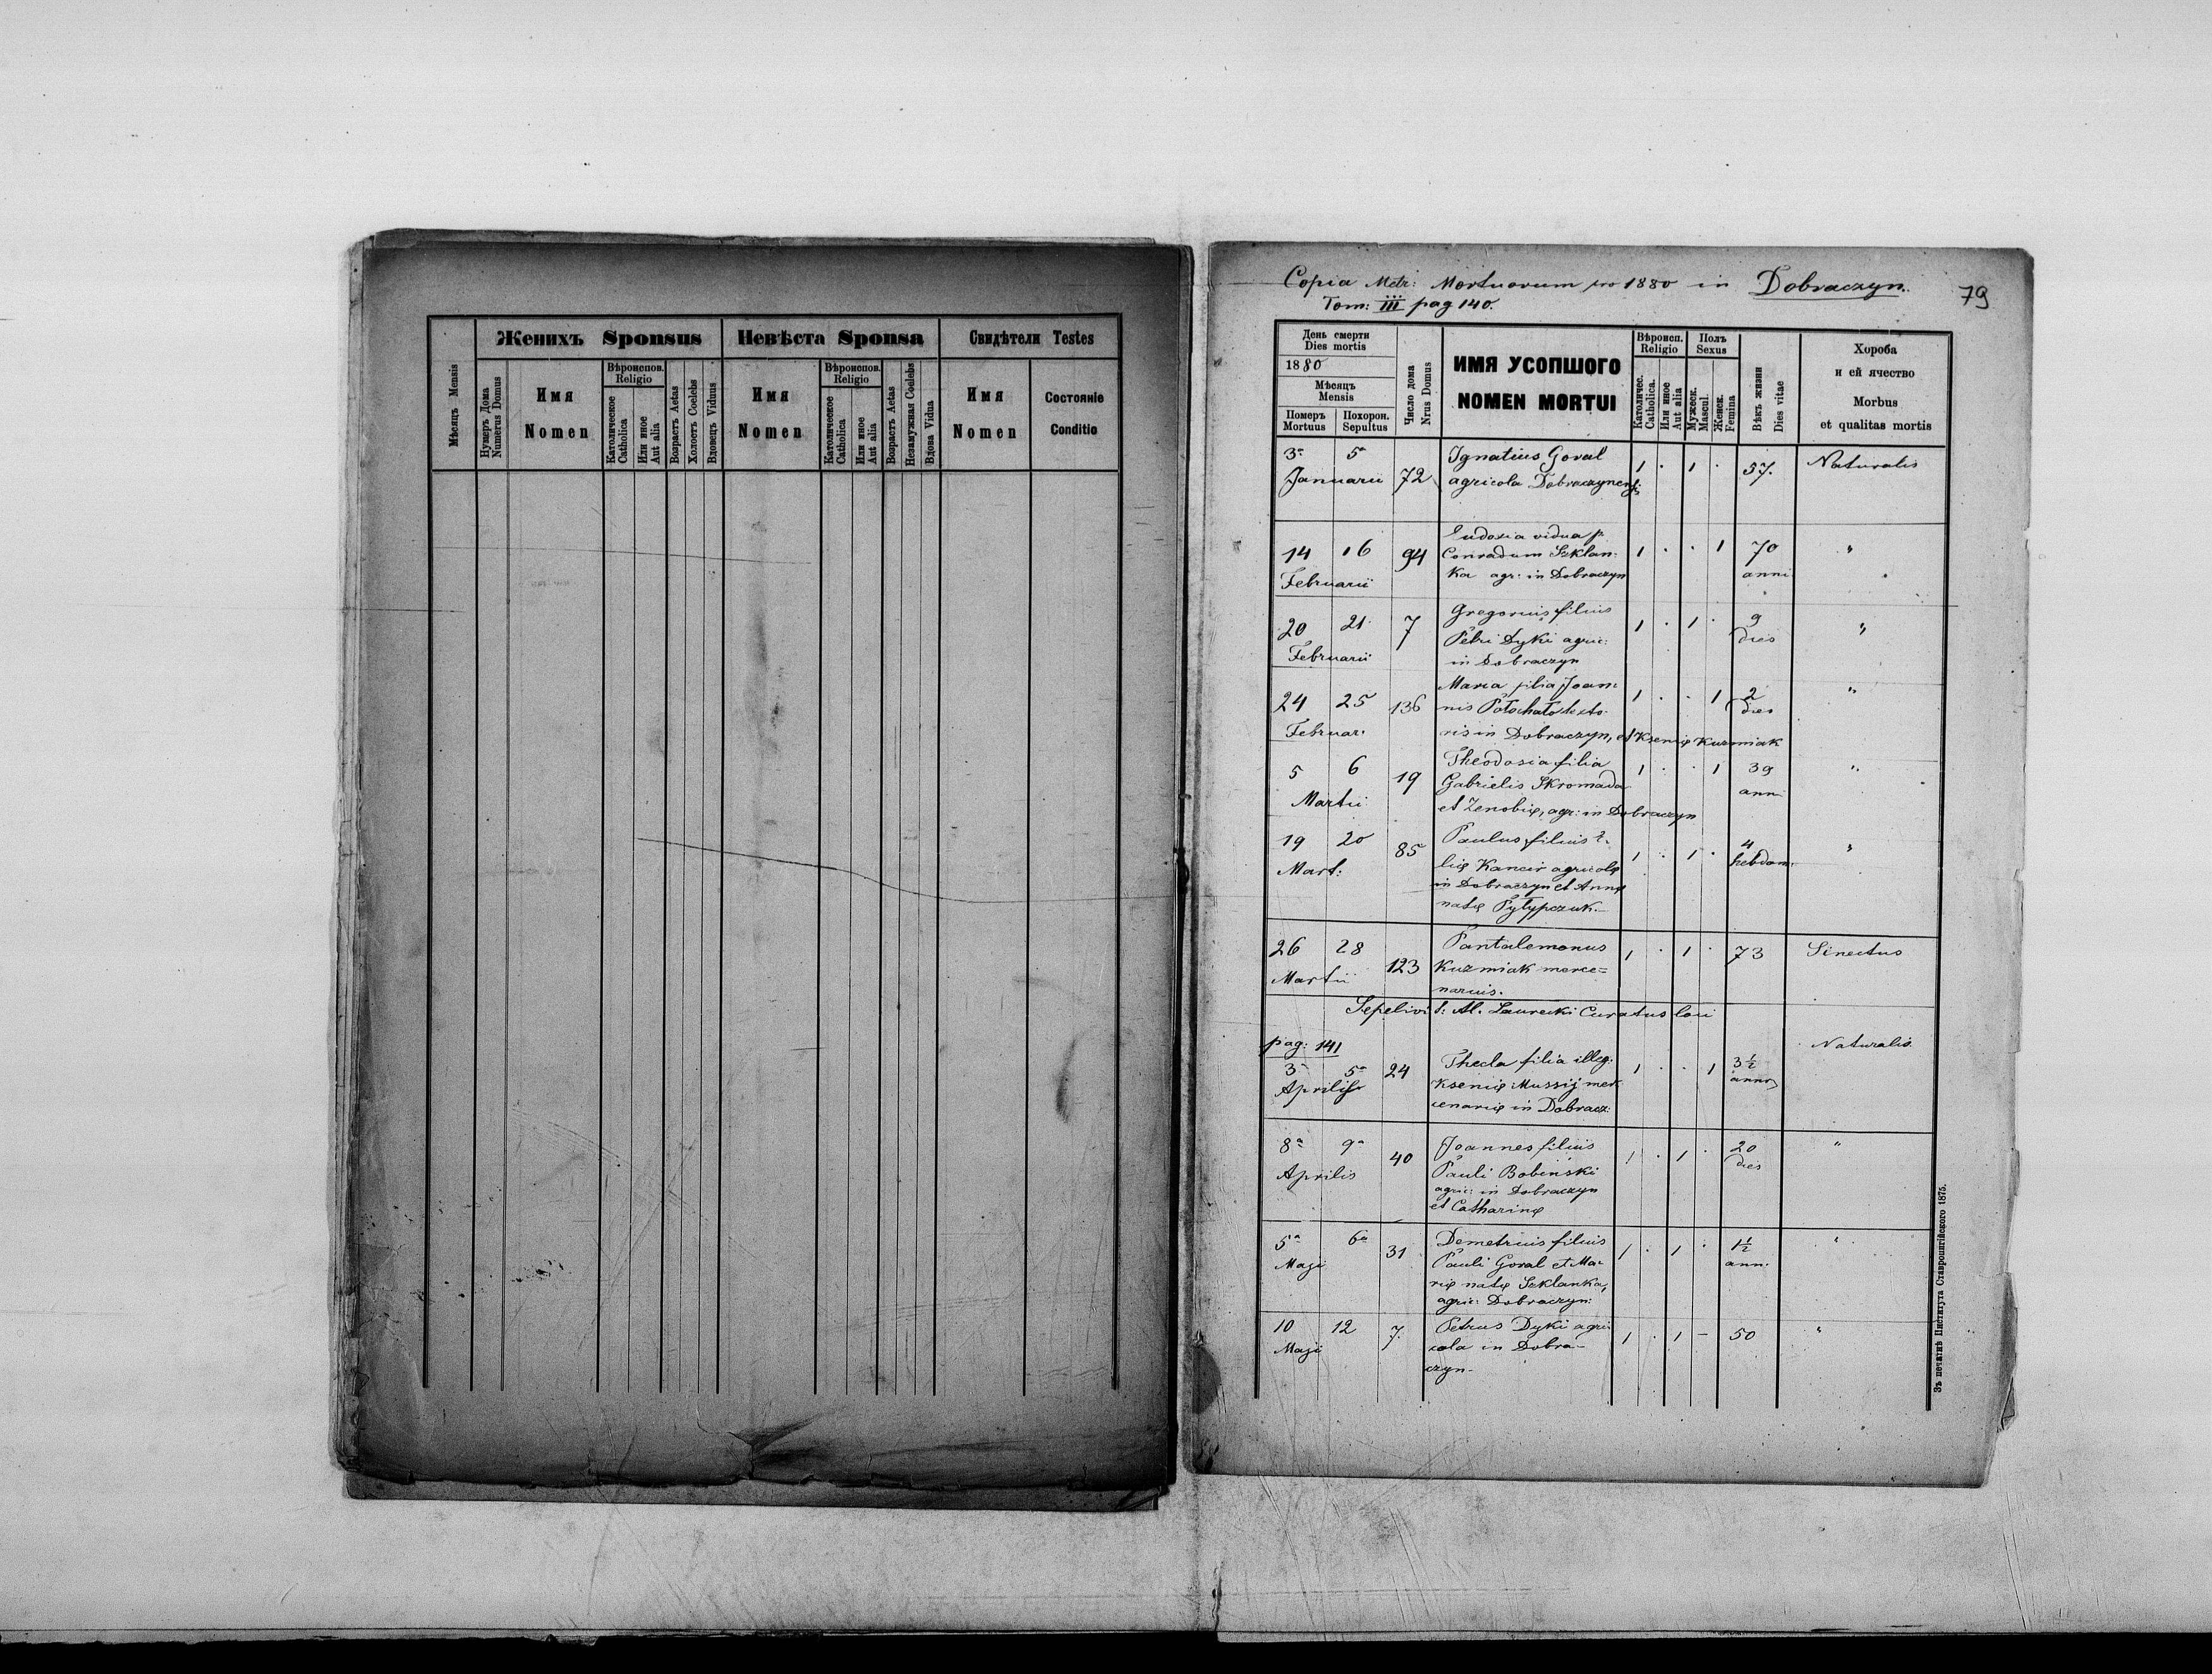 Женихъ Sponsus
Невѣста Sponsa
Свидѣтели Testes
Мѣсяцъ Mensis
Нумеръ Дома
Numerus Domus
Имя
Nomen
Вѣроиспов.
Religio
Католическое
Catholica
Или иное
Aut alia
Возрастъ Aetas
Холостъ Coelebs
Вдовецъ Viduus
Имя
Nomen
Вѣроиспов.
Religio
Католическое
Catholica
Или иное
Aut alia
Возрастъ Aetas
Незамужная Coelebs
Вдова Vidua
Имя
Nomen
Состояніе
Conditio
Copia Metr: Mortuorum pro 1880 in Dobraczyn.
79
Tom: III pag 140.
День смерти
Dies mortis
1880
Мѣсяцъ
Mensis
Померъ
Mortuus
Похорон.
Sepultus
Число дома
Nrus Domus
ИМЯ УСОПШОГО
NOMEN MORTUI
Вѣроисп.
Religio
Католичес.
Catholica.
Или иное
Aut alia
Полъ
Sexus
Мужеск.
Mascul.
Женск.
Femina
Вѣкъ жизни
Dies vitae
Хороба
и ей ячество
Morbus
et qualitas mortis
3a 5a Ignatius Goral
Januarii 72 agricola Dobraczynens: 1 . 1 . 57. Naturalis
Eudoxia vidua p.
14 16 94 Conradum Szklan- 1 . . 1 70 "
Februarii ka agr: in Dobraczyn anni
Gregorius filius
20 21 7 Petri Dyki agric: 1 . 1 . 9 dies "
Februarii in Dobraczyn
Maria filia Joan-
24 25 136 nis Potochato texto- 1 . . 1 2 dies "
Februar: ris in Dobraczyn, et Ksenię Kuzmiak
Theodosia filia
5 6 19 Gabrielis Skromada 1 . . 1 39 anni "
Martii et Zenobię, agr: in Dobraczyn
19 20 85 Paulus filius
Mart: lię Kancir agricolę 1 . 1 . 4 hebdom: "
in Dobraczyn et Annę
natę Pyłypczuk.
26 28 123 Pantalemonus 1 . 1 . 73 Senectus
Martii Kuzmiak merce=
narius.
Sepelivi Al. Laurecki Curatus loci
pag: 141 Naturalis
3a 5a 24 Thecla filia illeg. 1 . . 1 3½ anno
Aprilis Ksenię Mussij mer
cenarię in Dobracz:
8a 9a 40 Joannes filius 1 . 1 . 20 dies "
Aprilis Pauli Bobinski
agric: in Dobraczyn
et Catharinę
5a 6a 31 Demetrius filius 1 . 1 . 1½ ann. "
Maji Pauli Goral et Ma-
rię natę Szklanka,
agric: Dobraczyn:
10 12 7. Petrus Dyki agri- 1 . 1 - 50 "
Maji cola in Dobra-
czyn.
Зъ печатнѣ Института Ставропигійского 1875.